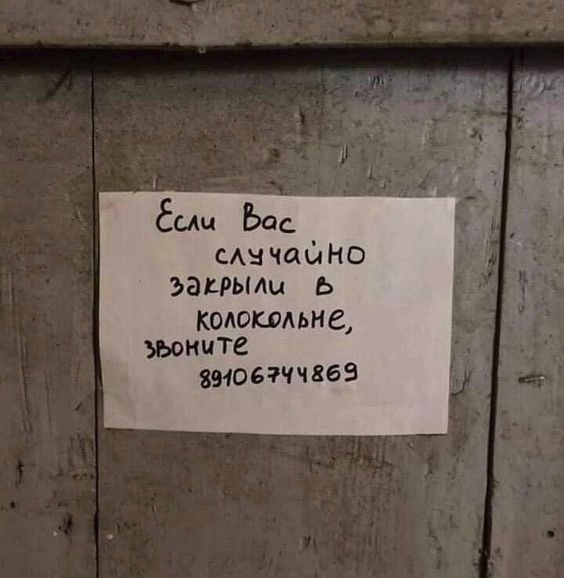 Если Вас
случайно
закрыли в
колокольне,
звоните
89106744869